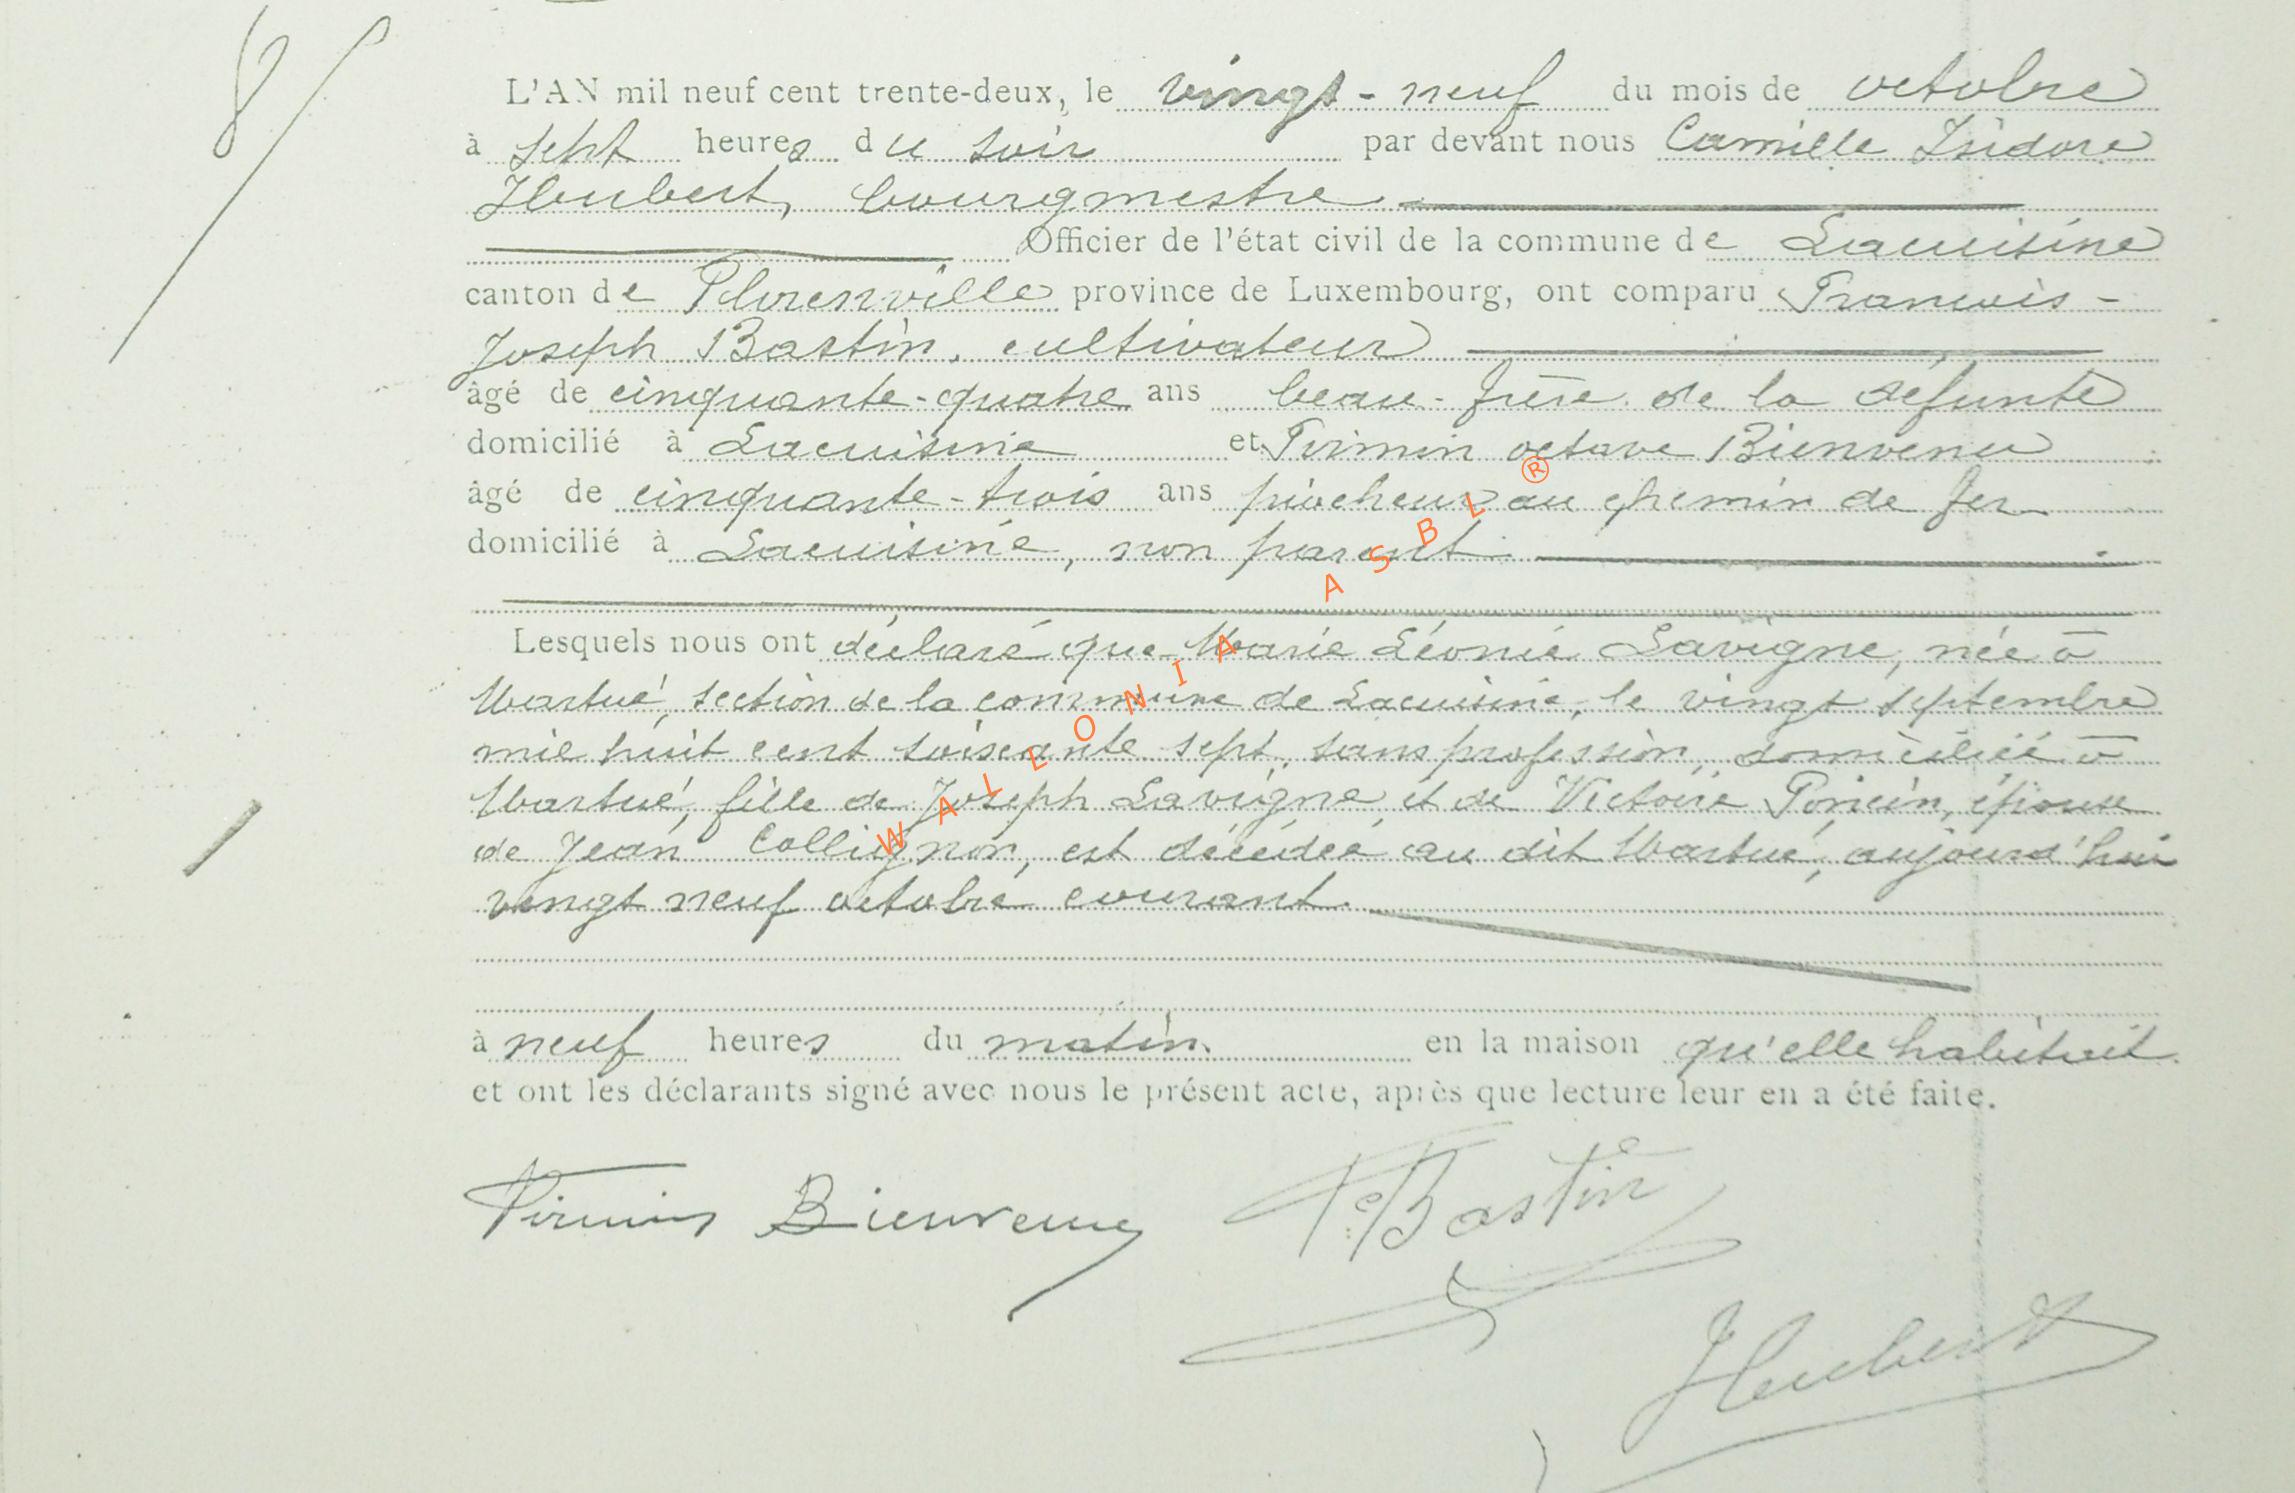 8
L'AN mil neuf cent trente-deux, le vingt-neuf du mois de octobre
à sept heures du soir par devant nous Camille Isidore
Hubert, bourgmestre
Officier de l'état civil de la commune de Lacuisine
canton de Florenville province de Luxembourg, ont comparu François-
Joseph Bastin, cultivateur
âgé de cinquante-quatre ans beau-frère de la défunte
domicilié à Lacuisine et Firmin octave Bienvenu
âgé de cinquante-trois ans piocheur au chemin de fer
domicilié à Lacuisine, non parent
Lesquels nous ont déclaré que Marie Léonie Lavigne, née à
Martué, section de la commune de Lacuisine, le vingt septembre
mil huit cent soixante sept, sans profession, domiciliée à
Martué, fille de Joseph Lavigne et de Victoire Poncin, épouse
de Jean Collignon, est décédée au dit Martué, aujourd'hui
vingt neuf octobre courant.
à neuf heures du matin. en la maison qu'elle habitait.
et ont les déclarants signé avec nous le présent acte, après que lecture leur en a été faite.
Firmin Bienvenu Bastin
Hubert
WALLONIA ASBL ®